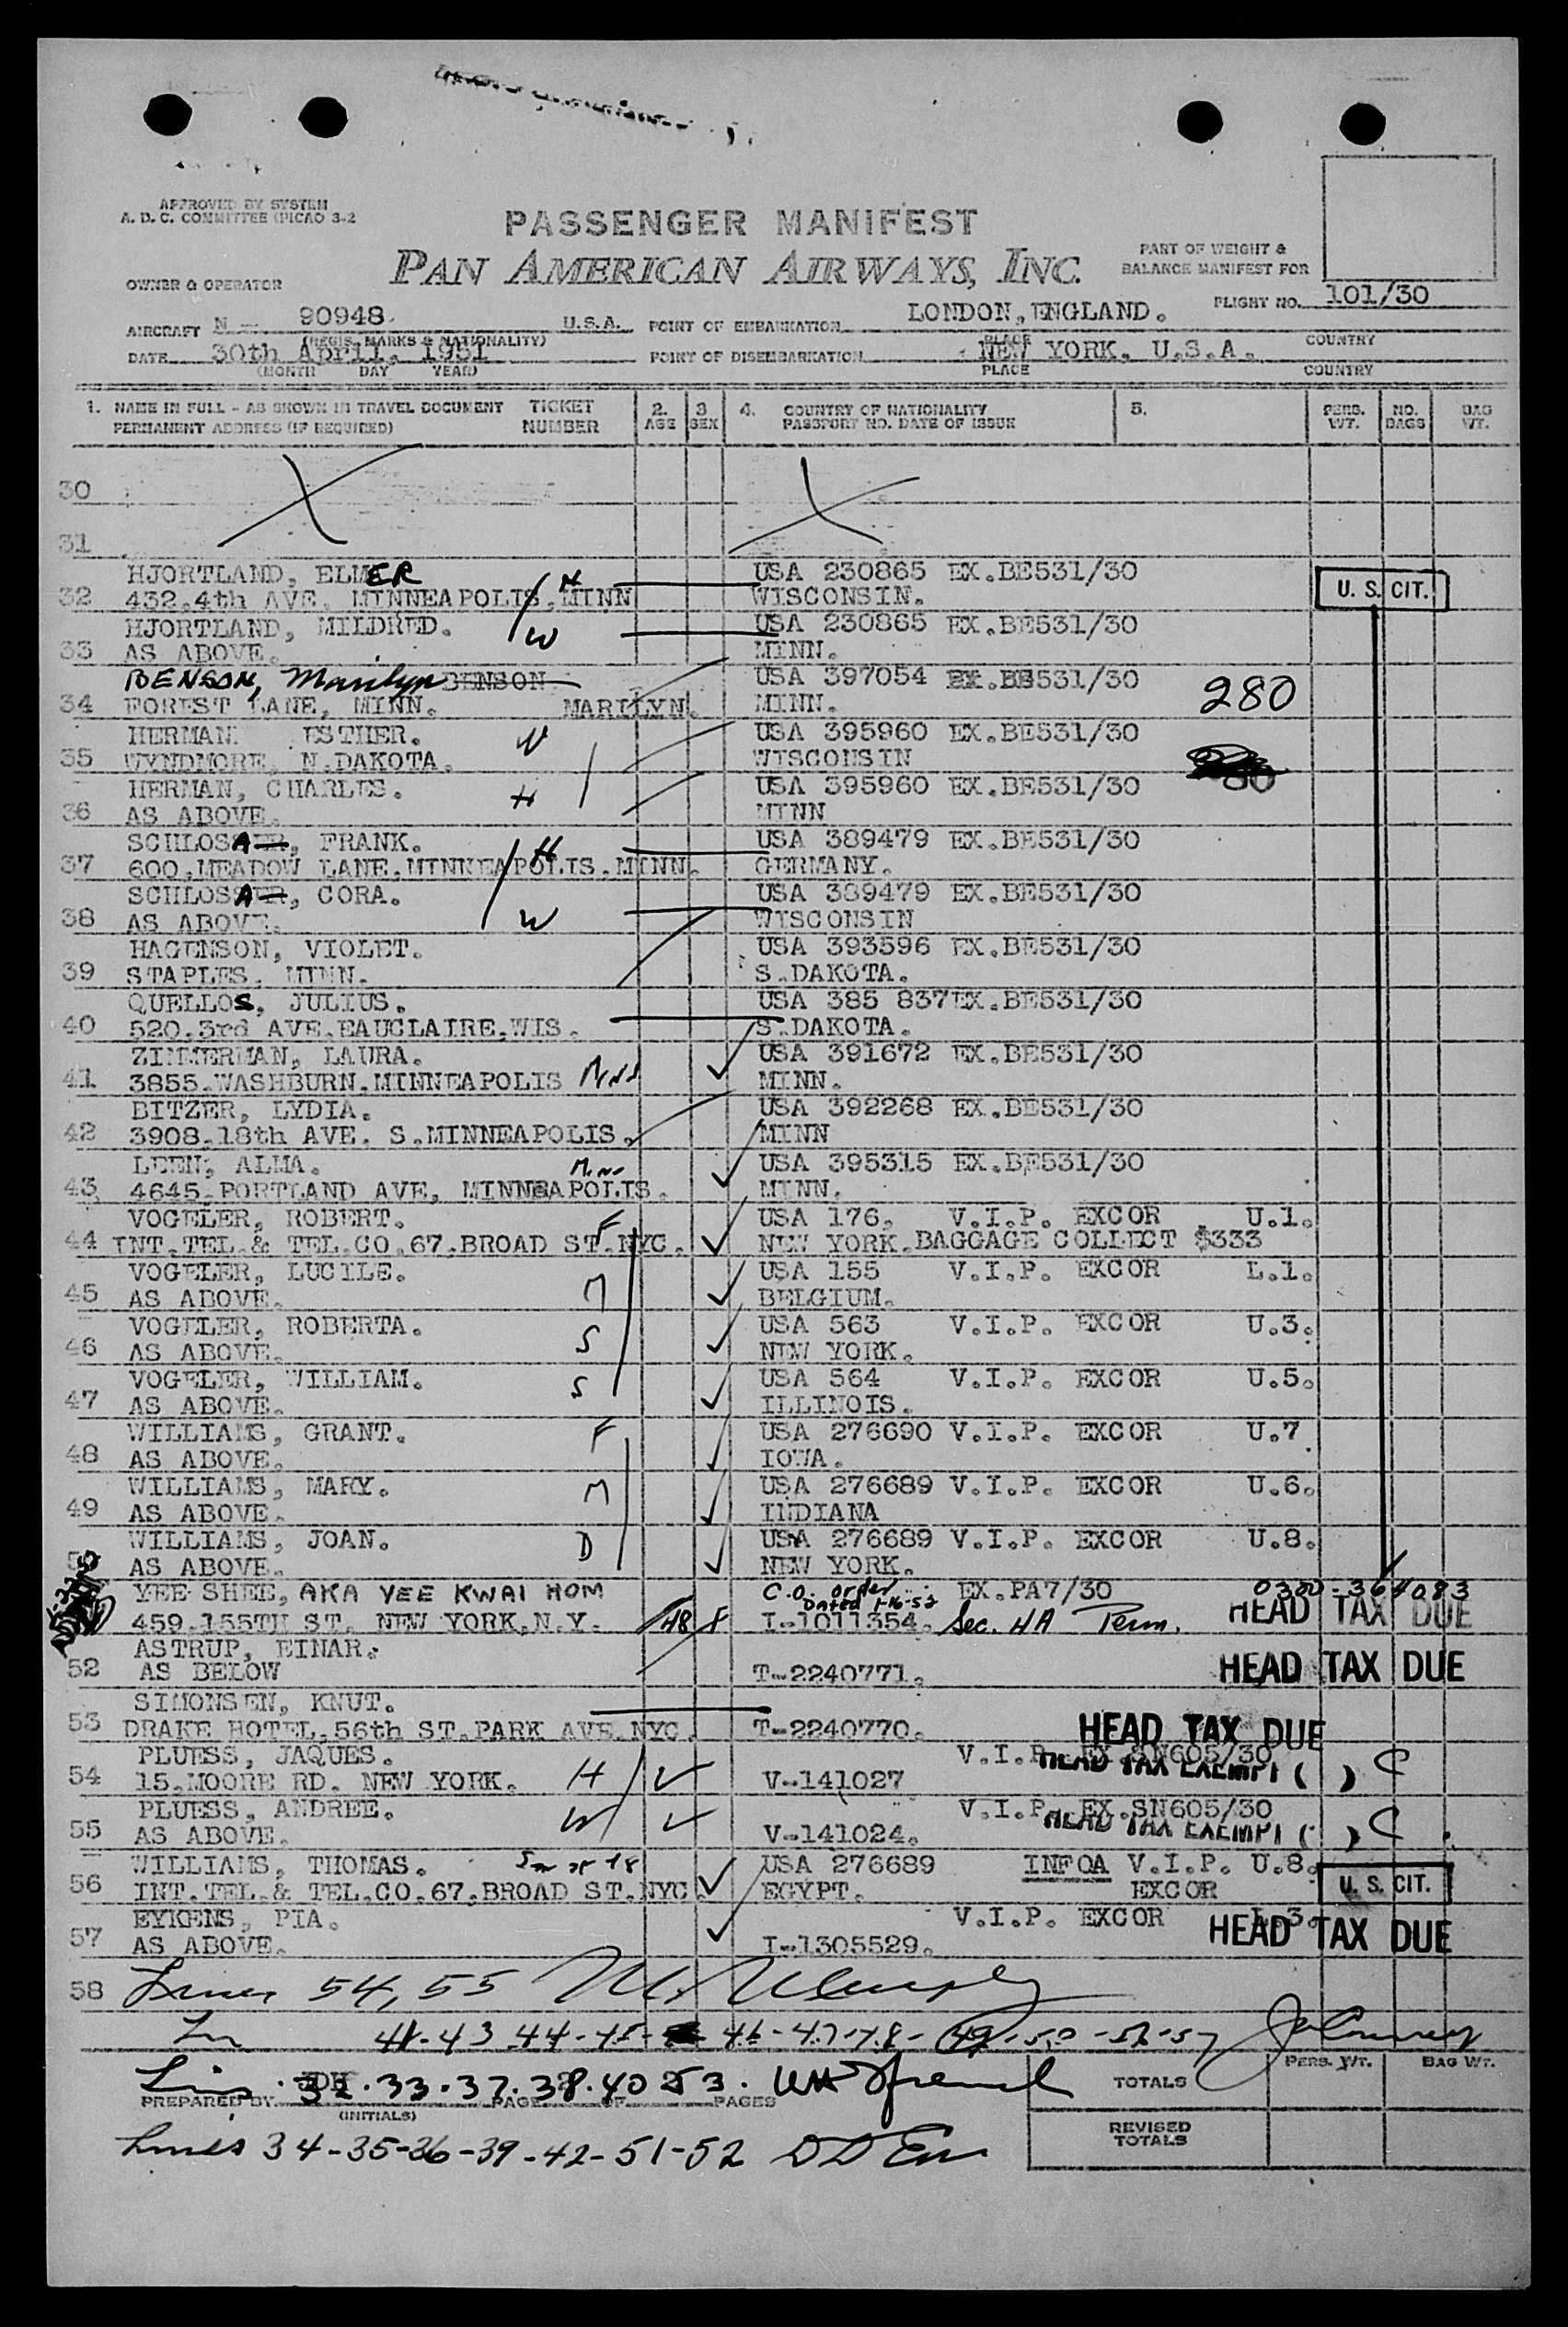 APPROVED BY SYSTEM
A. D. C. COMMITTEE (PICAO 3-2
PASSENGER MANIFEST
PAN AMERICAN AIRWAYS, INC.
OWNER & OPERATOR
PART OF WEIGHT &
BALANCE MANIFEST FOR
FLIGHT NO. 101/30
AIRCRAFT N - 90948. U.S.A. POINT OF EMBARKATION LONDON, ENGLAND.
(REGIS. MARKS & NATIONALITY) PLACE COUNTRY
DATE 30th April. 1951 POINT OF DISEMBARKATION NEW YORK. U.S.A.
(MONTH DAY YEAR) PLACE COUNTRY
1. NAME IN FULL - AS SHOWN IN TRAVEL DOCUMENT TICKET 2. 3 4. COUNTRY OF NATIONALITY 5. PERS. NO. BAG
PERMANENT ADDRESS (IF REQUIRED) NUMBER AGE SEX PASSPORT NO. DATE OF ISSUE WT. BAGS WT.
30
31
HJORTLAND, ELMER USA 230865 EX.BE531/30
32 432.4th AVE. MINNEAPOLIS.MINN H WISCONSIN. U. S. CIT.
HJORTLAND, MILDRED. USA 230865 EX.BE531/30
33 AS ABOVE. W MINN.
BENSON, Marilyn BENSON USA 397054 EX.BE531/30
34 FOREST LANE, MINN. MARILYN. MINN. 280
HERMAN ESTHER. W USA 395960 EX.BE531/30
35 WYNDMORE, N.DAKOTA. WISCONSIN
HERMAN, CHARLES. H USA 395960 EX.BE531/30
36 AS ABOVE. MINN
SCHLOSA, FRANK. H USA 389479 EX.BE531/30
37 600.MEADOW LANE.MINNEAPOLIS.MINN. GERMANY.
SCHLOSA, CORA. USA 389479 EX.BE531/30
38 AS ABOVE. W WISCONSIN
HAGENSON, VIOLET. USA 393596 EX.BE531/30
39 STAPLES. MINN. S.DAKOTA.
QUELLOS, JULIUS. USA 385 837EX.BE531/30
40 520.3rd AVE.EAUCLAIRE.WIS. S.DAKOTA.
ZIMMERMAN, LAURA. USA 391672 EX.BE531/30
41 3855.WASHBURN.MINNEAPOLIS MINN.
BITZER, LYDIA. USA 392268 EX.BE531/30
42 3908.18th AVE. S.MINNEAPOLIS. MINN
LEEN, ALMA. Minn USA 395315 EX.BE531/30
43 4645.PORTLAND AVE, MINNEAPOLIS. MINN.
VOGELER, ROBERT. F USA 176. V.I.P. EXCOR U.1.
44 INT.TEL.& TEL.CO.67.BROAD ST.NYC. NEW YORK.BAGGAGE COLLECT $333
VOGELER, LUCILE. M USA 155 V.I.P. EXCOR L.1.
45 AS ABOVE. BELGIUM.
VOGELER, ROBERTA. S USA 563 V.I.P. EXCOR U.3.
46 AS ABOVE. NEW YORK.
VOGELER, WILLIAM. S USA 564 V.I.P. EXCOR U.5.
47 AS ABOVE. ILLINOIS.
WILLIAMS, GRANT. F USA 276690 V.I.P. EXCOR U.7
48 AS ABOVE. IOWA.
WILLIAMS, MARY. M USA 276689 V.I.P. EXCOR U.6.
49 AS ABOVE. INDIANA
WILLIAMS, JOAN. D USA 276689 V.I.P. EXCOR U.8.
AS ABOVE. NEW YORK.
YEE SHEE, AKA YEE KWAI HOM C.O. order EX.PA7/30 0300-364083
Dated 1-16-52
459.155TH ST. NEW YORK.N.Y. 48 f I-1011354. Sec. HA Perm. HEAD TAX DUE
ASTRUP, EINAR.
52 AS BELOW T-2240771. HEAD TAX DUE
SIMONSEN, KNUT.
53 DRAKE HOTEL.56th ST.PARK AVE.NYC. T-2240770. HEAD TAX DUE
PLUESS, JAQUES. V.I.P. EX.SN605/30
54 15.MOORE RD. NEW YORK. H V-141027 HEAD TAX EXEMPT ( ) C
PLUESS, ANDREE. V.I.P. EX.SN605/30
55 AS ABOVE. W V-141024. HEAD TAX EXEMPT ( ) C
WILLIAMS, THOMAS. USA 276689 INFOA V.I.P. U.8.
56 INT.TEL.& TEL.CO.67.BROAD ST.NYC. EGYPT. EXCOR U. S. CIT.
EYKENS, PIA. V.I.P. EXCOR L.3.
57 AS ABOVE. I-1305529. HEAD TAX DUE
58 Lines 54, 55
Lin 41-43 44-45- 46-47-48-49-50-56-57
Lines 32.33.37.38.40 53.
PREPARED BY JDH PAGE OF PAGES
(INITIALS)
TOTALS PERS. WT. BAG WT.
REVISED
TOTALS
Lines 34-35-36-39-42-51-52